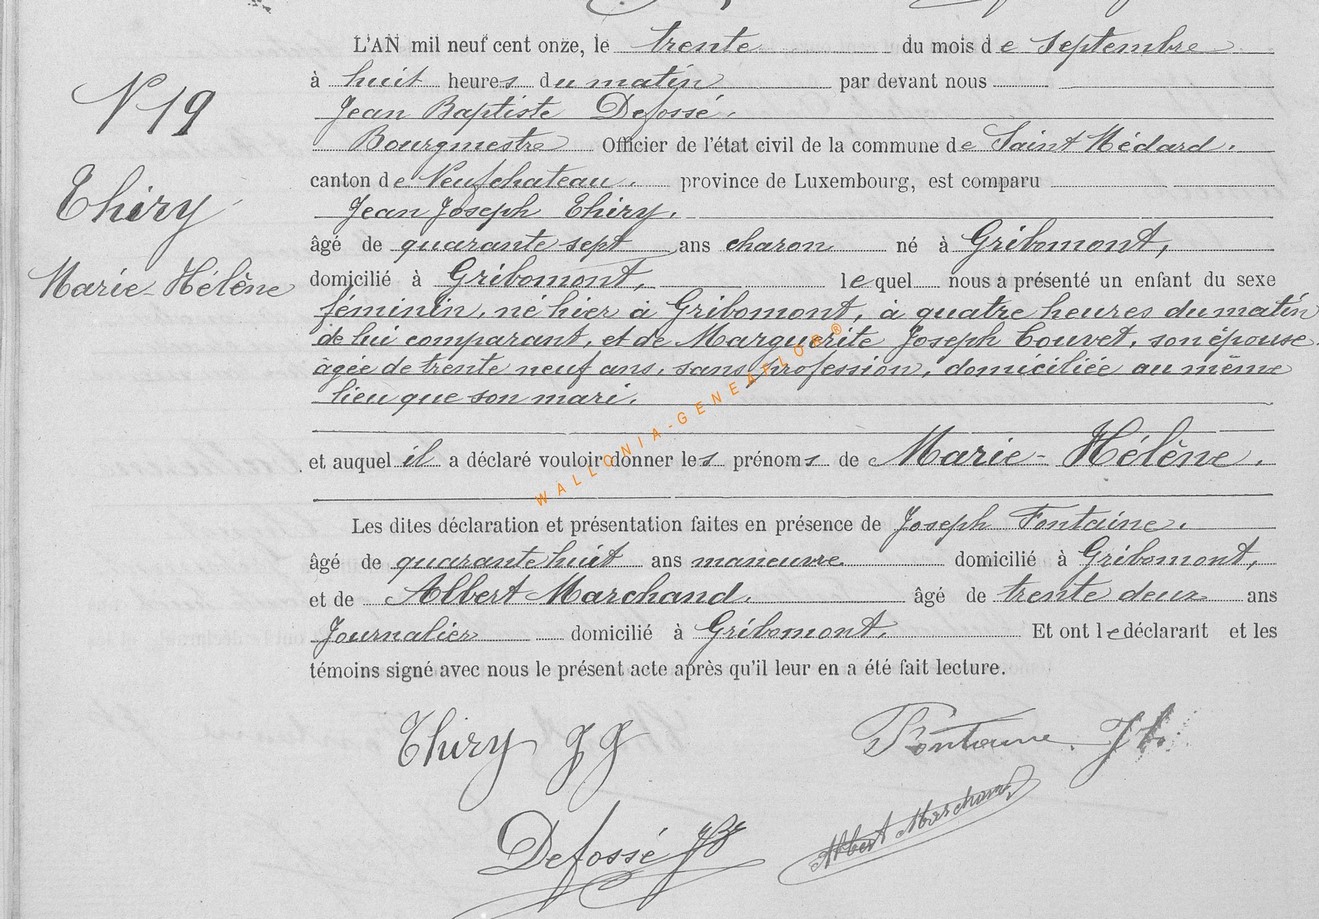 N 19
Thiry
Marie-Hélène
L'AN mil neuf cent onze, le trente du mois de Septembre
à huit heures du matin par devant nous
Jean Baptiste Defossé.
Bourgmestre Officier de l'état civil de la commune de Saint Médard.
canton de Neufchateau. province de Luxembourg, est comparu
Jean Joseph Thiry.
âgé de quarante sept ans charon né à Gribomont,
domicilié à Gribomont, lequel nous a présenté un enfant du sexe
féminin, né hier à Gribomont, à quatre heures du matin
de lui comparant, et de Marguerite Joseph Touvet, son épouse
âgée de trente neuf ans, sans profession, domiciliée au même
lieu que son mari.
et auquel il a déclaré vouloir donner les prénoms de Marie-Hélène.
Les dites déclaration et présentation faites en présence de Joseph Fontaine.
âgé de quarante huit ans maneuvre domicilié à Gribomont,
et de Albert Marchand. âgé de trente deux ans
Journalier domicilié à Gribomont. Et ont le déclarant et les
témoins signé avec nous le présent acte après qu'il leur en a été fait lecture.
Thiry JJ Fontaine
Defossé JB Albert Marchand
WALLONIA-GENEAFLOR®